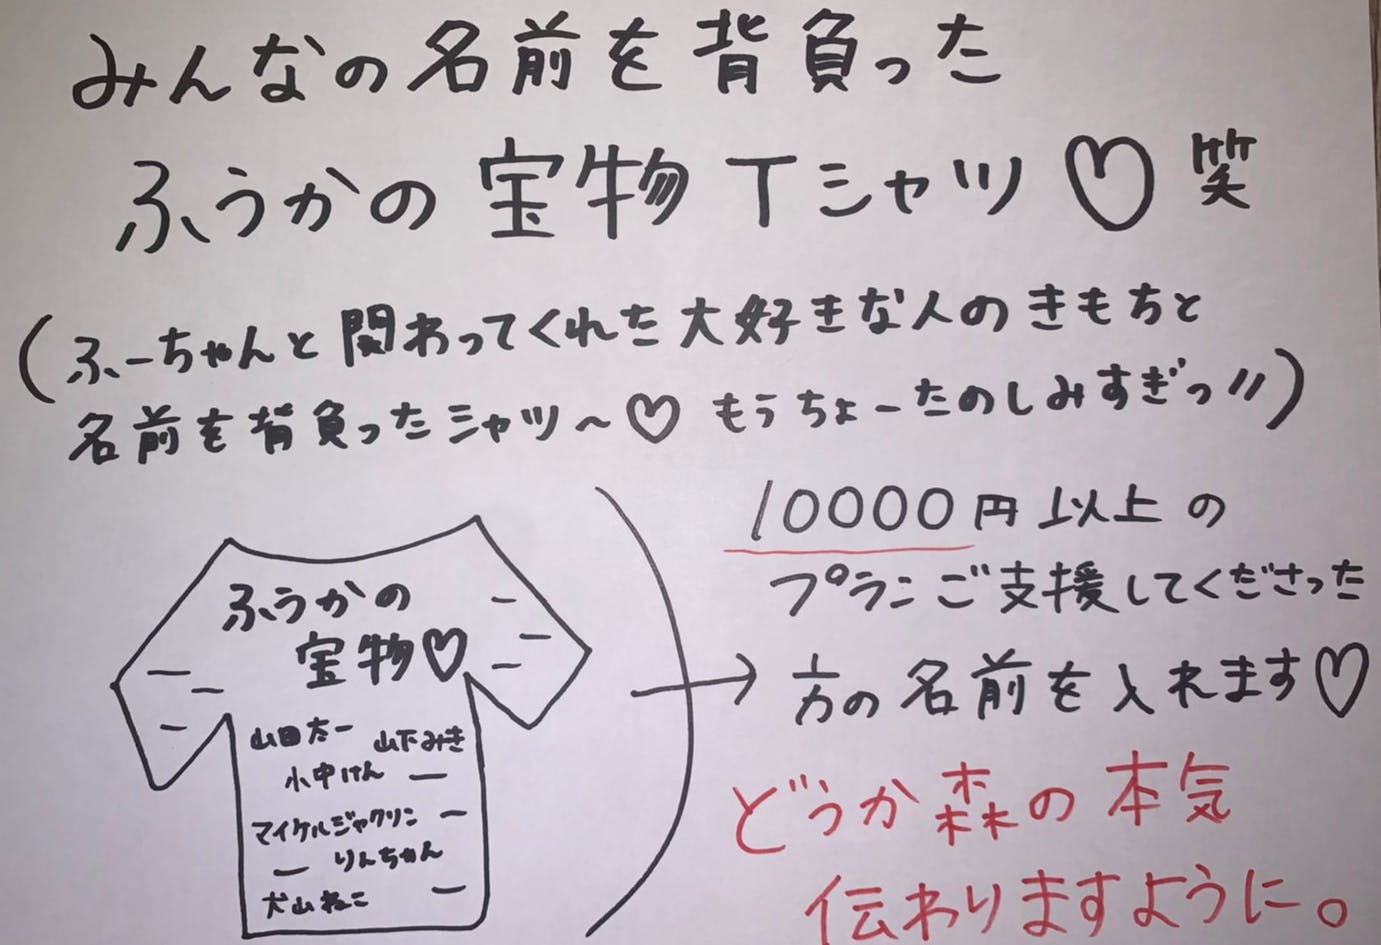 みんなの名前を背負った
ふうかの宝物Tシャツ♡笑
(ふーちゃんと関わってくれた大好きな人のきもちと
名前を背負ったシャツ〜♡もうちょーたのしみすぎっ!!)
ふうかの
宝物♡
山田太一 山下みき
小中けん ー
マイケルジャクソン ー
ー りんちゃん
犬山ねこ ー
→
10000円以上の
プランご支援してくださった
方の名前を入れます♡
どうか森の本気
伝わりますように。